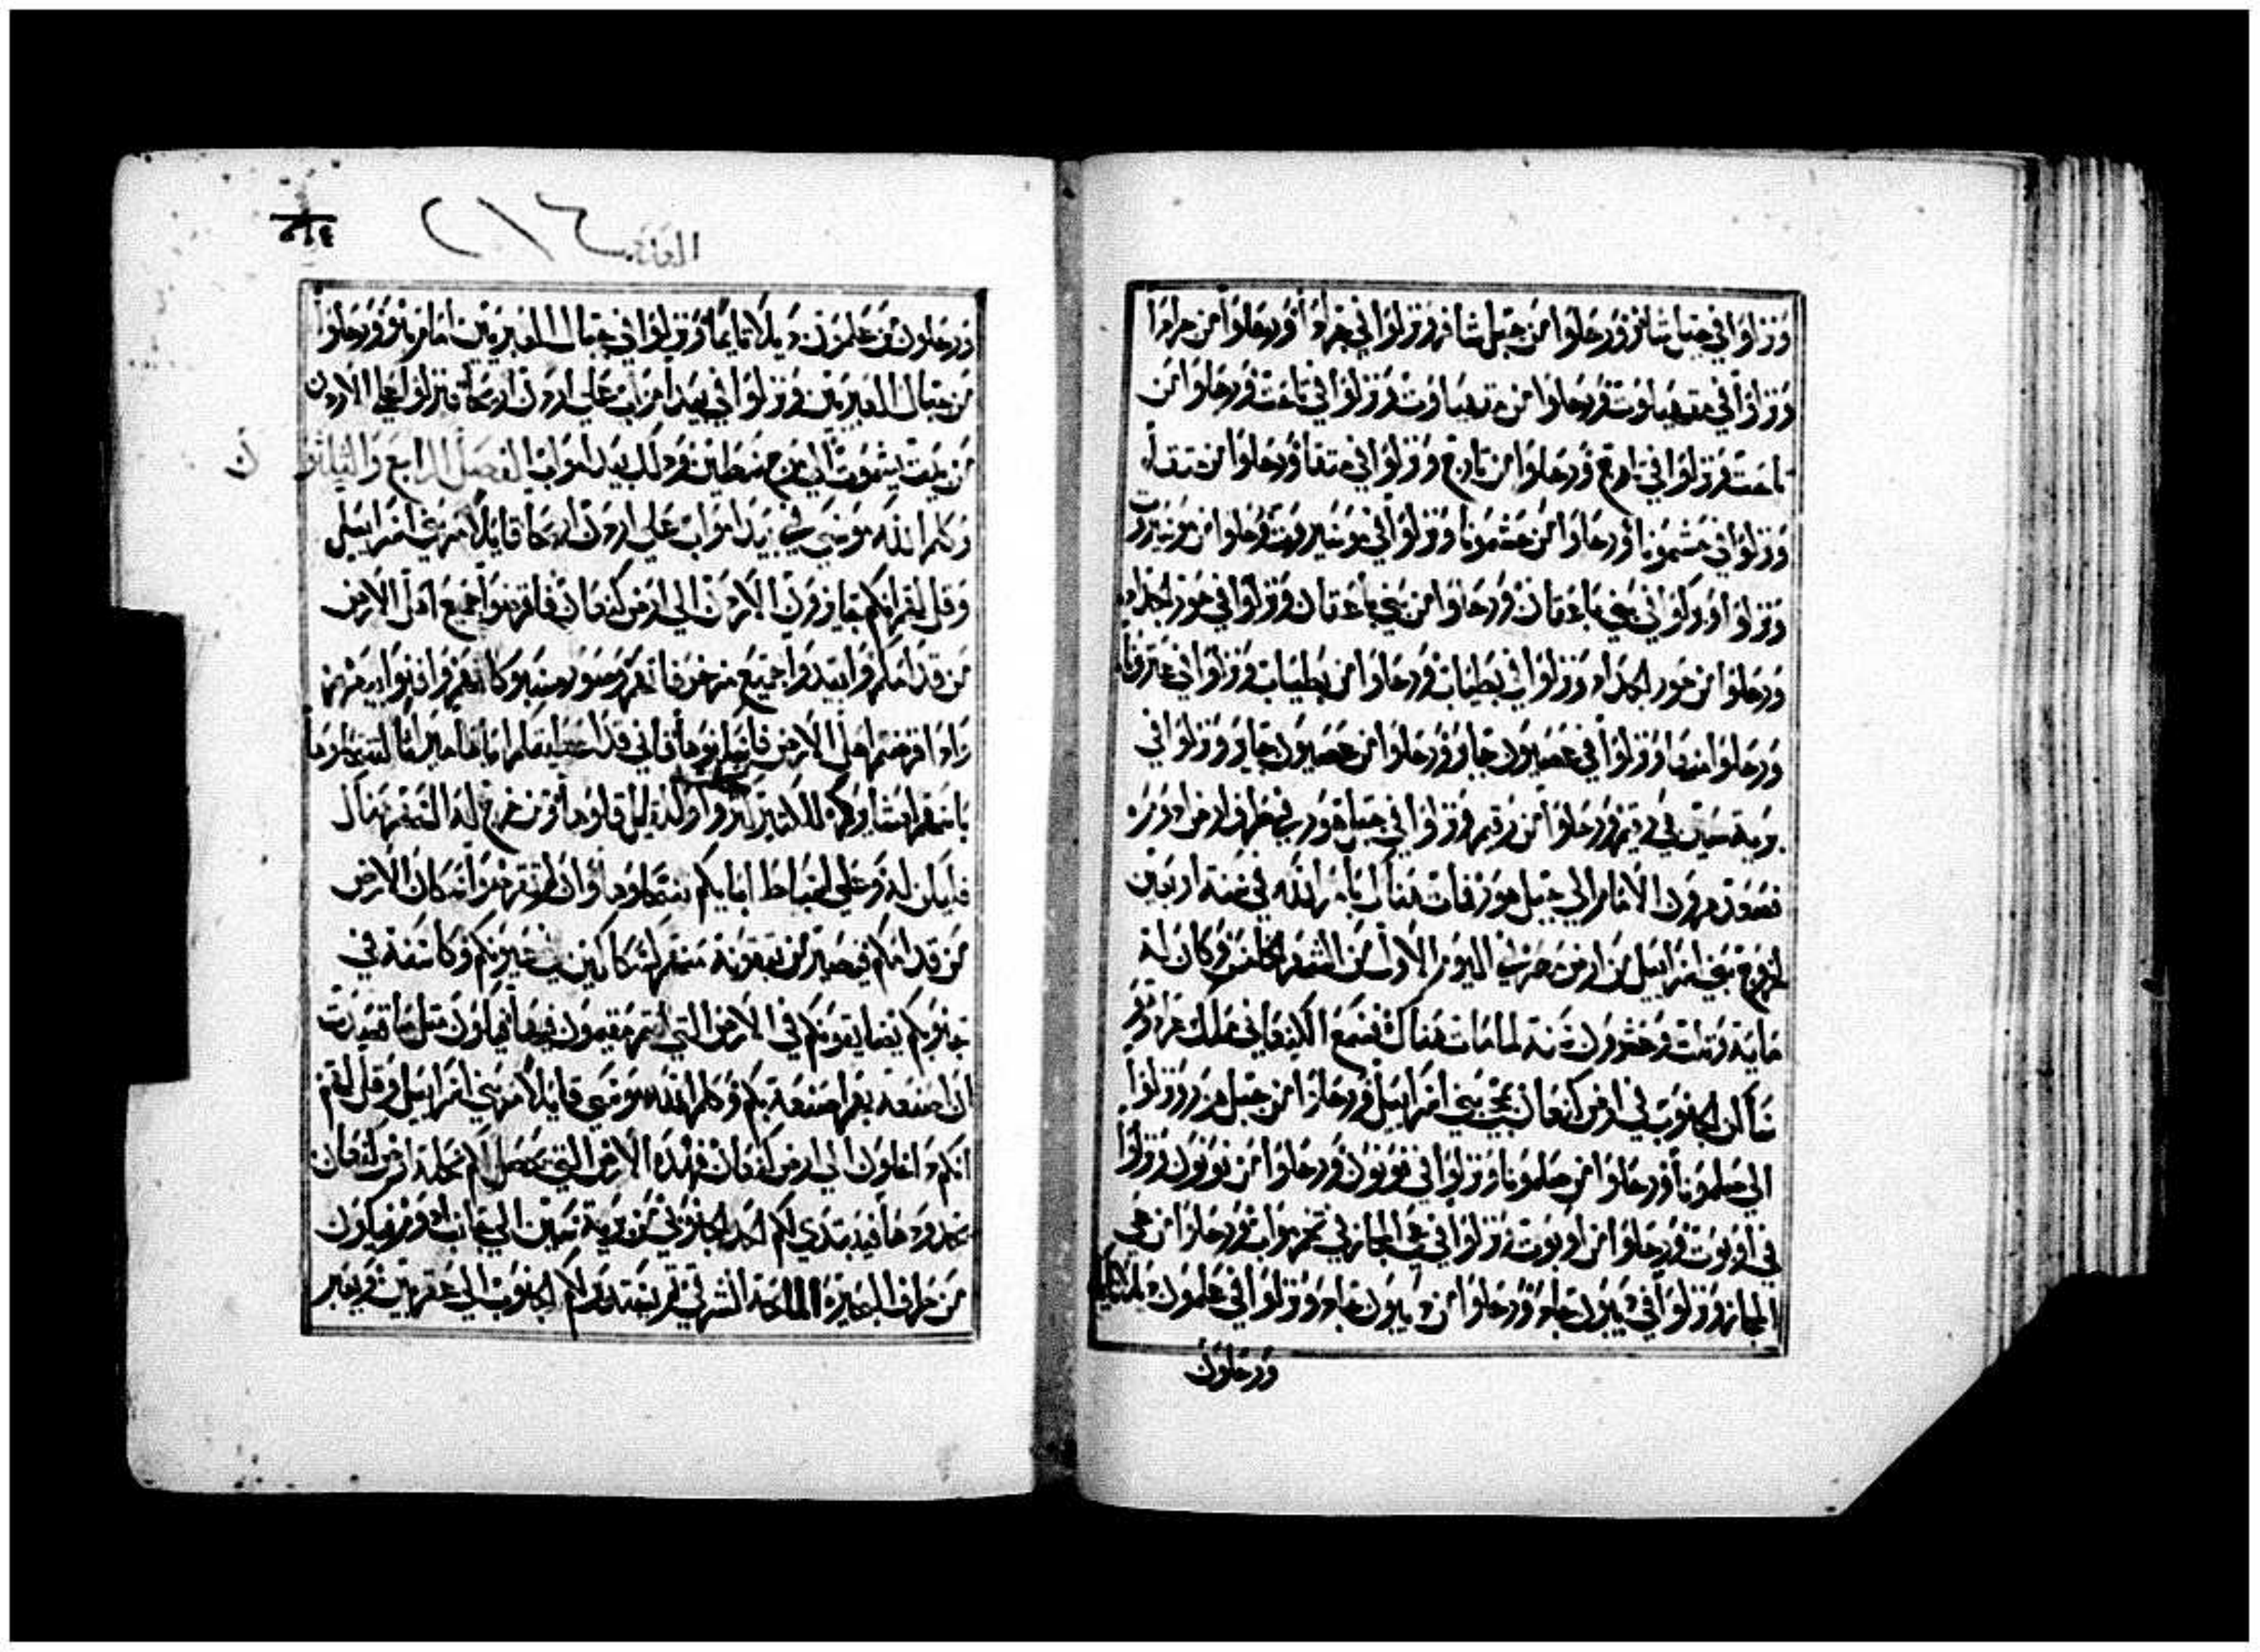 ونزلوا في جبل شافر ورحلوا من جبل شافر ونزلوا في حرادا ورحلوا من حرادا
ونزلوا في مقهيلوت ورحلوا من مقهيلوت ونزلوا في تاحت ورحلوا من
تاحت ونزلوا في تارح ورحلوا من تارح ونزلوا في متقا ورحلوا من متقا
ونزلوا في حشمونا ورحلوا من حشمونا ونزلوا في موسيروت ورحلوا من موسيروت
ونزلوا في بني ياعقان ورحلوا من بني ياعقان ونزلوا في حور الجدجاد
ورحلوا من حور الجدجاد ونزلوا في يطبات ورحلوا من يطبات ونزلوا في عبرونا
ورحلوا منها ونزلوا في عصيون جابر ورحلوا من عصيون جابر ونزلوا في
برية سين في رقيم ورحلوا من رقيم ونزلوا في جبل هور في طرف ارض ادوم
فصعد هرون الامام الى جبل هور فمات هناك بامر الله في سنة اربعين
لخروج بني اسراييل من ارض مصر في اليوم الاول من الشهر الخامس وكان له
ماية وثلث وعشرون سنة لما مات هناك فسمع الكنعاني ملك عراد
ساكن الجنوب في ارض كنعان بمجي بني اسراييل ورحلوا من جبل هور ونزلوا
الى صلمونا ورحلوا من صلمونا ونزلوا في فونون ورحلوا من فونون ونزلوا
في اوبوت ورحلوا من اوبوت ونزلوا في عي المجاز في تخم مواب ورحلوا من عي
المجاز ونزلوا في ديبون جاد ورحلوا من ديبون جاد ونزلوا في علمون دبلاتايم
ورحلون
العدد ٢١٦
ورحلون من علمون دبلاتايما ونزلوا في جبال العبريين امام نابو ورحلوا
من جبال العبريين ونزلوا في بيدا مواب على اردن اريحا فنزلوا على الاردن
من بيت يشموت الى مرج شطين في بيدا مواب الفصل الرابع والثلثون
وكلم الله موسى في بيدا مواب على اردن اريحا قايلا مر بني اسراييل
وقل لهم انكم تجاوزون الاردن الى ارض كنعان فاقرضوا جميع اهل الارض
من قدامكم وابيدوا جميع
الارض فاني قد اعطيتكم اياها ميراثا لتتخلوها
فليكن له وعلى اسباط ابايكم تنتحلوها وان لم تقرضوا سكان الارض
من قدامكم فيصير من تبقونه منهم في عيونكم
جنوبكم يضايقونكم في الارض التي انتم مقيمون فيها فيكون مثل ما قدرت
ان اصنعه بهم اصنعه بكم وكلم الله موسى قايلا مر بني اسراييل وقل لهم
انكم داخلون الى ارض كنعان فهذه الارض التي تحصل لكم نحلة ارض كنعان
بحدودها فيبتدي لكم الحد الجنوبي من برية سين الى جانب ادوم ويكون
من طرف البحيرة المالحة الشرقي ثم يستدير لكم الجنوب الى عقربين ويعبر